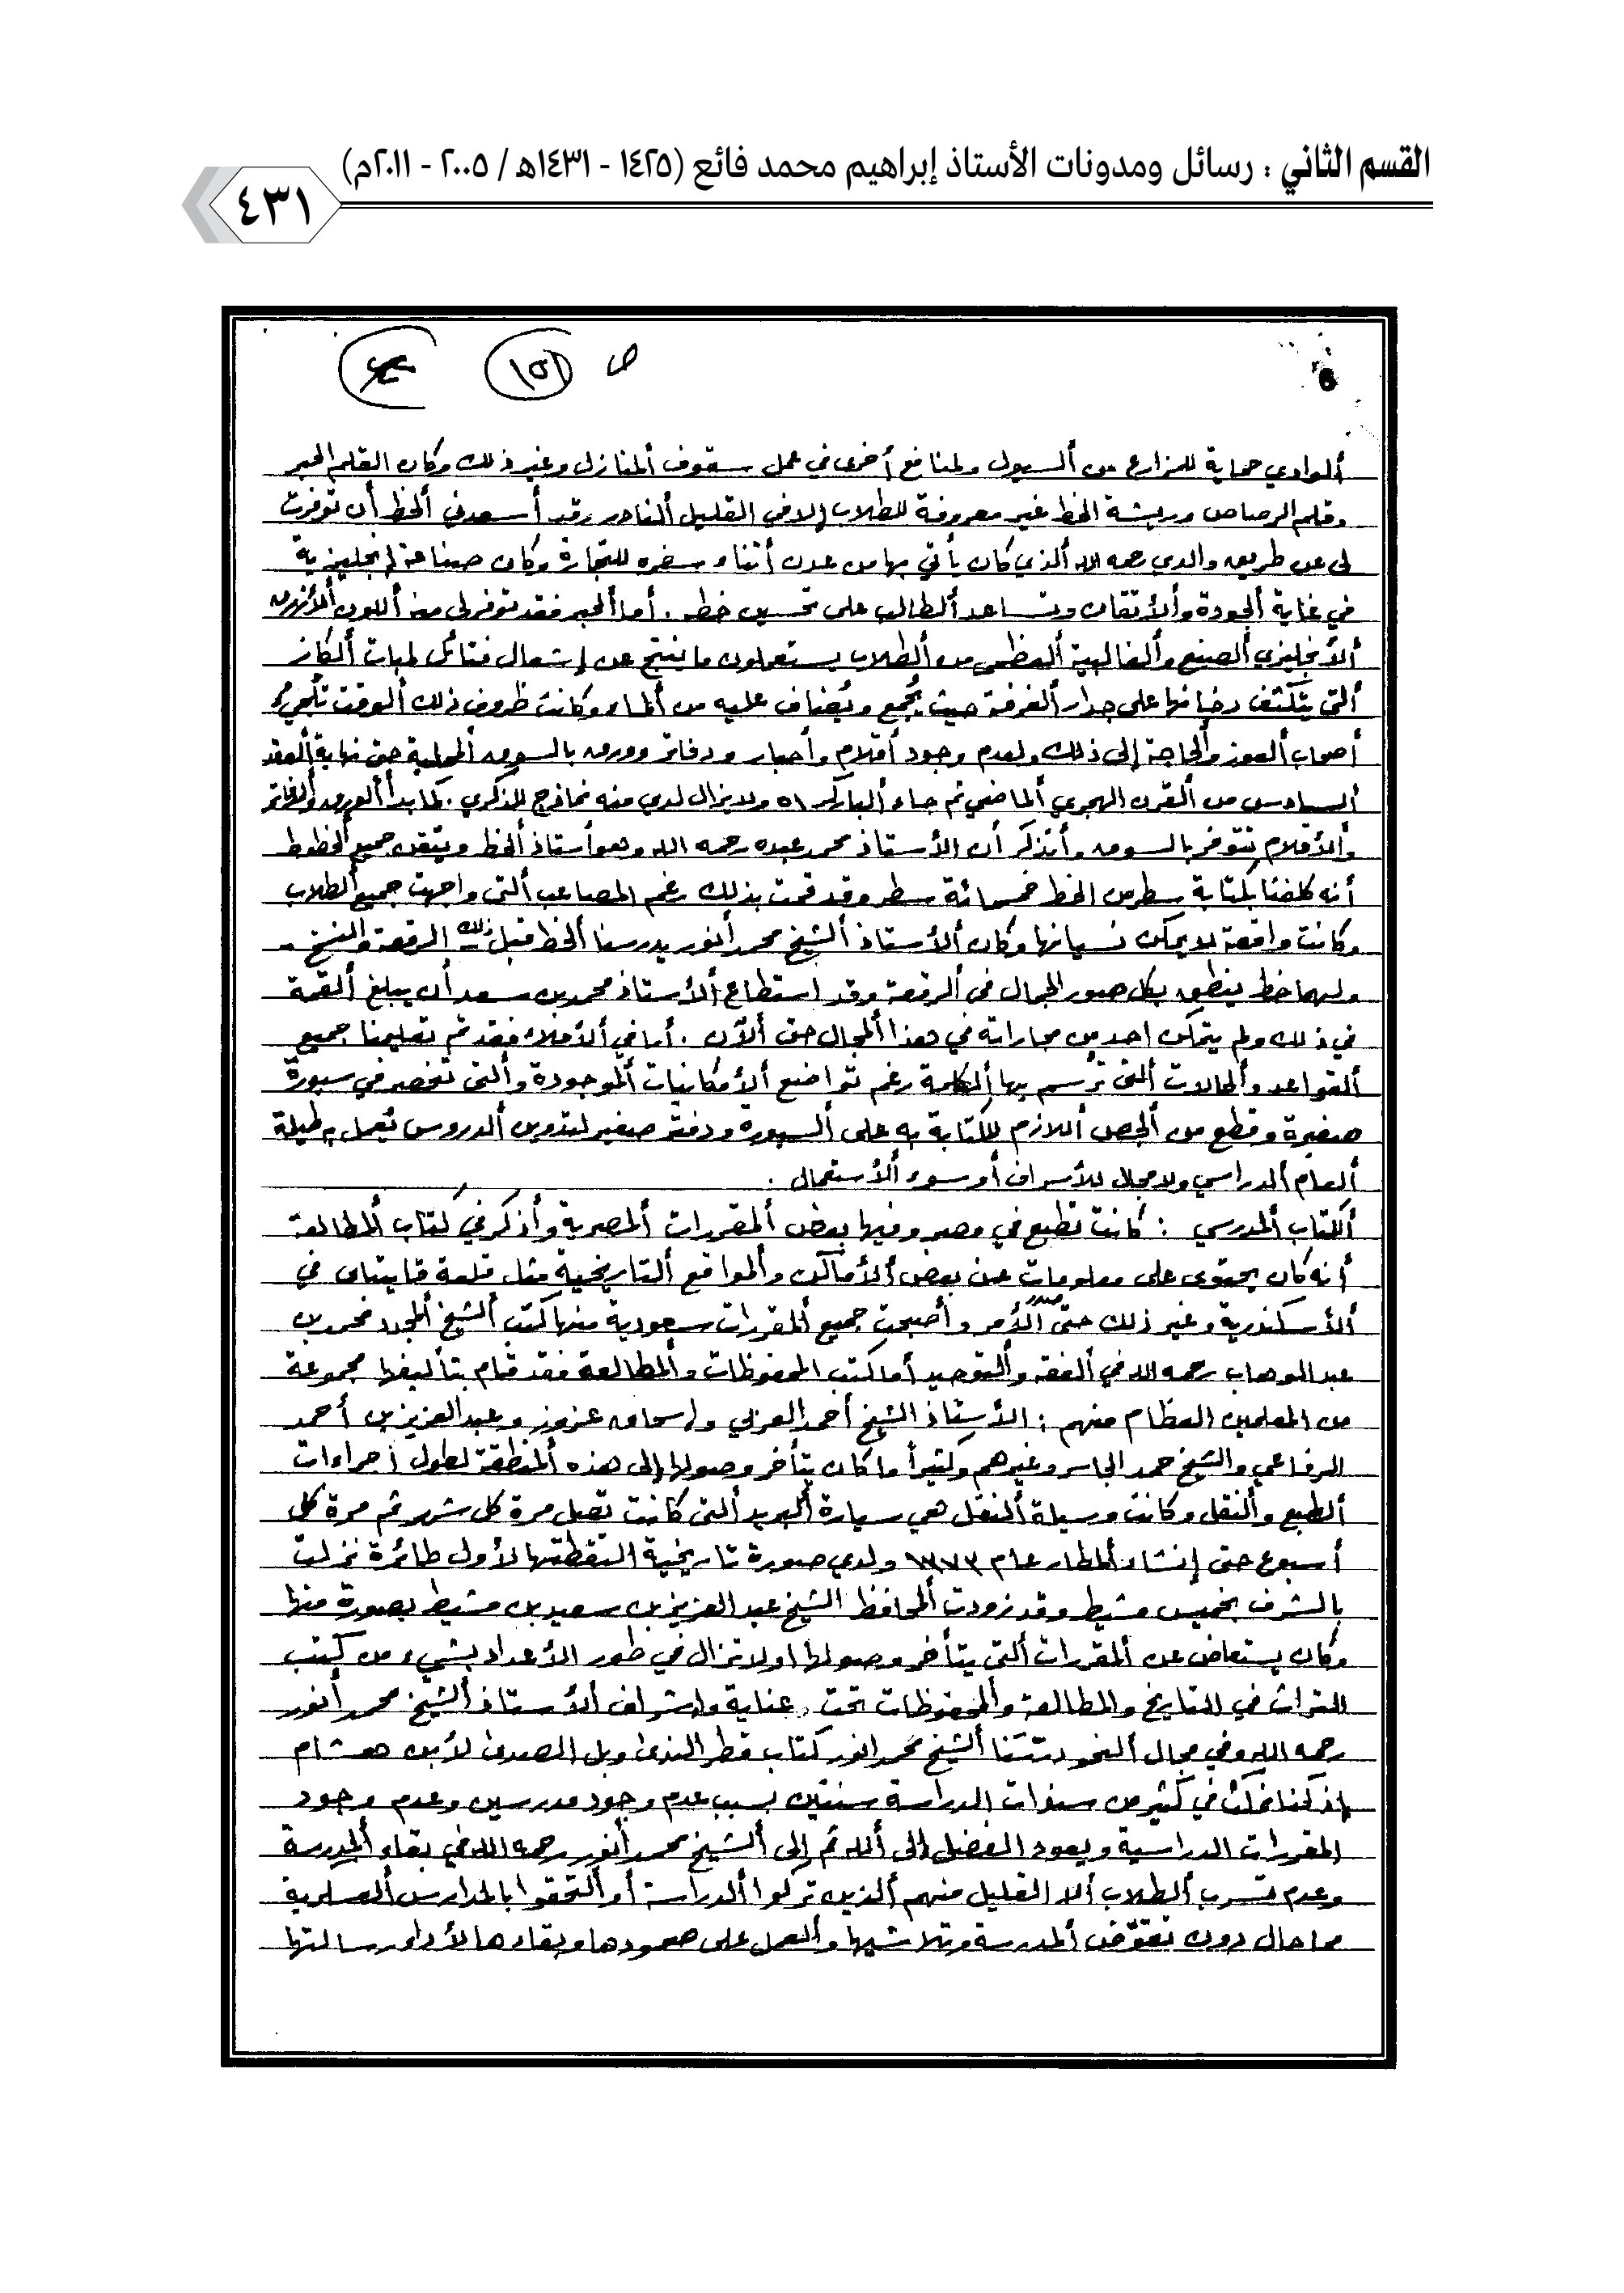 القسم الثاني : رسائل ومدونات الأستاذ إبراهيم محمد فائع (١٤٢٥ - ١٤٣١هـ / ٢٠٠٥ - ٢٠١١م)
٤٣١
ص
ألوادي حماية للمزارع من ألسيول ولمنافع أخرى في عمل سقوف ألمنازل وغير ذلك وكان القلم الحبر
وقلم الرصاص وريشة الخط غير معروفة للطلاب إلا في القليل ألنادر وقد أسعدني ألحظ أن توفرت
لى عن طريق والدي رحمه الله ألذي كان يأتي بها من عدن أثناء سفره للتجارة وكان صناعة إنجليزية
في غاية ألجودة وألأتقان وتساعد ألطالب على تحسين خطه . أما ألحبر فقد توفر لى منه أللون ألأزرق
ألأنجليزي ألصنع وألغالبية ألعظمى من ألطلاب يستعملون ما ينتج عن إشعال فتائل لمبات ألكاز
ألتى يتكثف دخانها على جدار ألغرفة حيث يُجمع ويُضاف عليه من ألماء وكانت ظروف ذلك ألوقت تلجيءُ
أصحاب ألعوز وألحاجة إلى ذلك ولعدم وجود أقلام وأحبار ودفاتر وورق بالسوق ألمحلية حتى نهاية ألعقد
ألسادس من ألقرن الهجري ألماضي ثم جاء ألباركر ٥١ ولا يزال لدي منه نماذج للذكري . كما بدأ ألورق وألدفاتر
وألأقلام تتوفر بالسوق وأتذكر أن الأستاذ محمد عبده رحمه الله وهو أستاذ ألخط ويتقن جميع ألخطوط
أنه كلفنا بكتابة سطر من الخط خمسمائة سطر وقد قمت بذلك رغم المصاعب ألتى واجهت جميع ألطلاب
وكانت واقعة لا يمكن نسيانها وكان ألأستاذ ألشيخ محمد أنور يدرسنا ألخط قبل ذلك الرقعة والنسخ -
ولهما خط ينطق بكل صور الجمال في ألرقعة وقد استطاع ألأستاذ محمد بن سعد أن يبلغ ألقمة
في ذلك ولم يتمكن احد من مجاراته في هذا ألمجال حتى ألآن . أما في ألأملاء فقد تم تعليمنا جميع
ألقواعد وألحالات ألتى تُرسم بها ألكلمة رغم تواضع ألأمكانيات ألموجودة وألتى تنحصر في سبورة
صغيرة وقطع من ألجص أللازم للكتابة به على ألسبورة ودفتر صغير لتدوين ألدروس تعمل به طيلة
ألعام ألدراسي ولا مجال للأسراف أو سوء ألأستعمال .
ألكتاب ألمدرسي : كانت تطبع في مصر وفيها بعض ألمقررات ألمصرية وأذكر في كتاب ألمطالعة
أنه كان يحتوى على معلومات عن بعض ألأماكن وألمواقع ألتاريخية مثل قلعة قايتباى في
ألأسكندرية وغير ذلك حتى صدر الأمر وأصبحت جميع ألمقررات سعودية منها كتب ألشيخ ألمجدد محمد بن
عبد الوهاب رحمه الله في ألفقه وألتوحيد أما كتب المحفوظات وألمطالعة فقد قام بتأليفها مجموعة
من المعلمين العظام منهم : الأستاذ الشيخ أحمد العربي وإسحاق عزوز وعبد العزيز بن أحمد
الرفاعي والشيخ حمد الجاسر وغيرهم وكثيراً ما كان يتأخر وصولها إلى هذه ألمنطقة لطول أجراءات
ألطبع وألنقل وكانت وسيلة ألنقل هي سيارة ألبريد ألتى كانت تصل مرة كل شهر ثم مرة كل
أسبوع حتى إنشاء ألمطار عام ١٣٧٣ ولدي صورة تاريخية التقطتها لأول طائرة نزلت
بالشرف بخميس مشيط وقد زودت ألمحافظ الشيخ عبد العزيز بن سعيد بن مشيط بصورة منها
وكان يستعاض عن ألمقررات ألتى يتأخر وصولها او لا تزال في طور الأعداد بشيء من كتب
التراث في التاريخ والمطالعة وألمحفوظات تحت عناية وإشراف ألأستاذ ألشيخ محمد أنور
رحمه الله وفي مجال ألنحو ألشيخ محمد انور كتاب قطر الندى وبل الصدى لأبن هشام
إذ كنا نمكث في كثير من سنوات الدراسة سنتين بسبب عدم وجود مدرسين وعدم وجود
المقررات الدراسية ويعود الفضل إلى ألله ثم إلى ألشيخ محمد أنور رحمه الله في بقاء ألمدرسة
وعدم تسرب ألطلاب ألا القليل منهم ألذين تركوا ألدراسة أو ألتحقوا بالمدارس ألعسكرية
مما حال دون تقوّض ألمدرسة وتلاشيها وألعمل على صمودها وبقاءها لأداء رسالتها